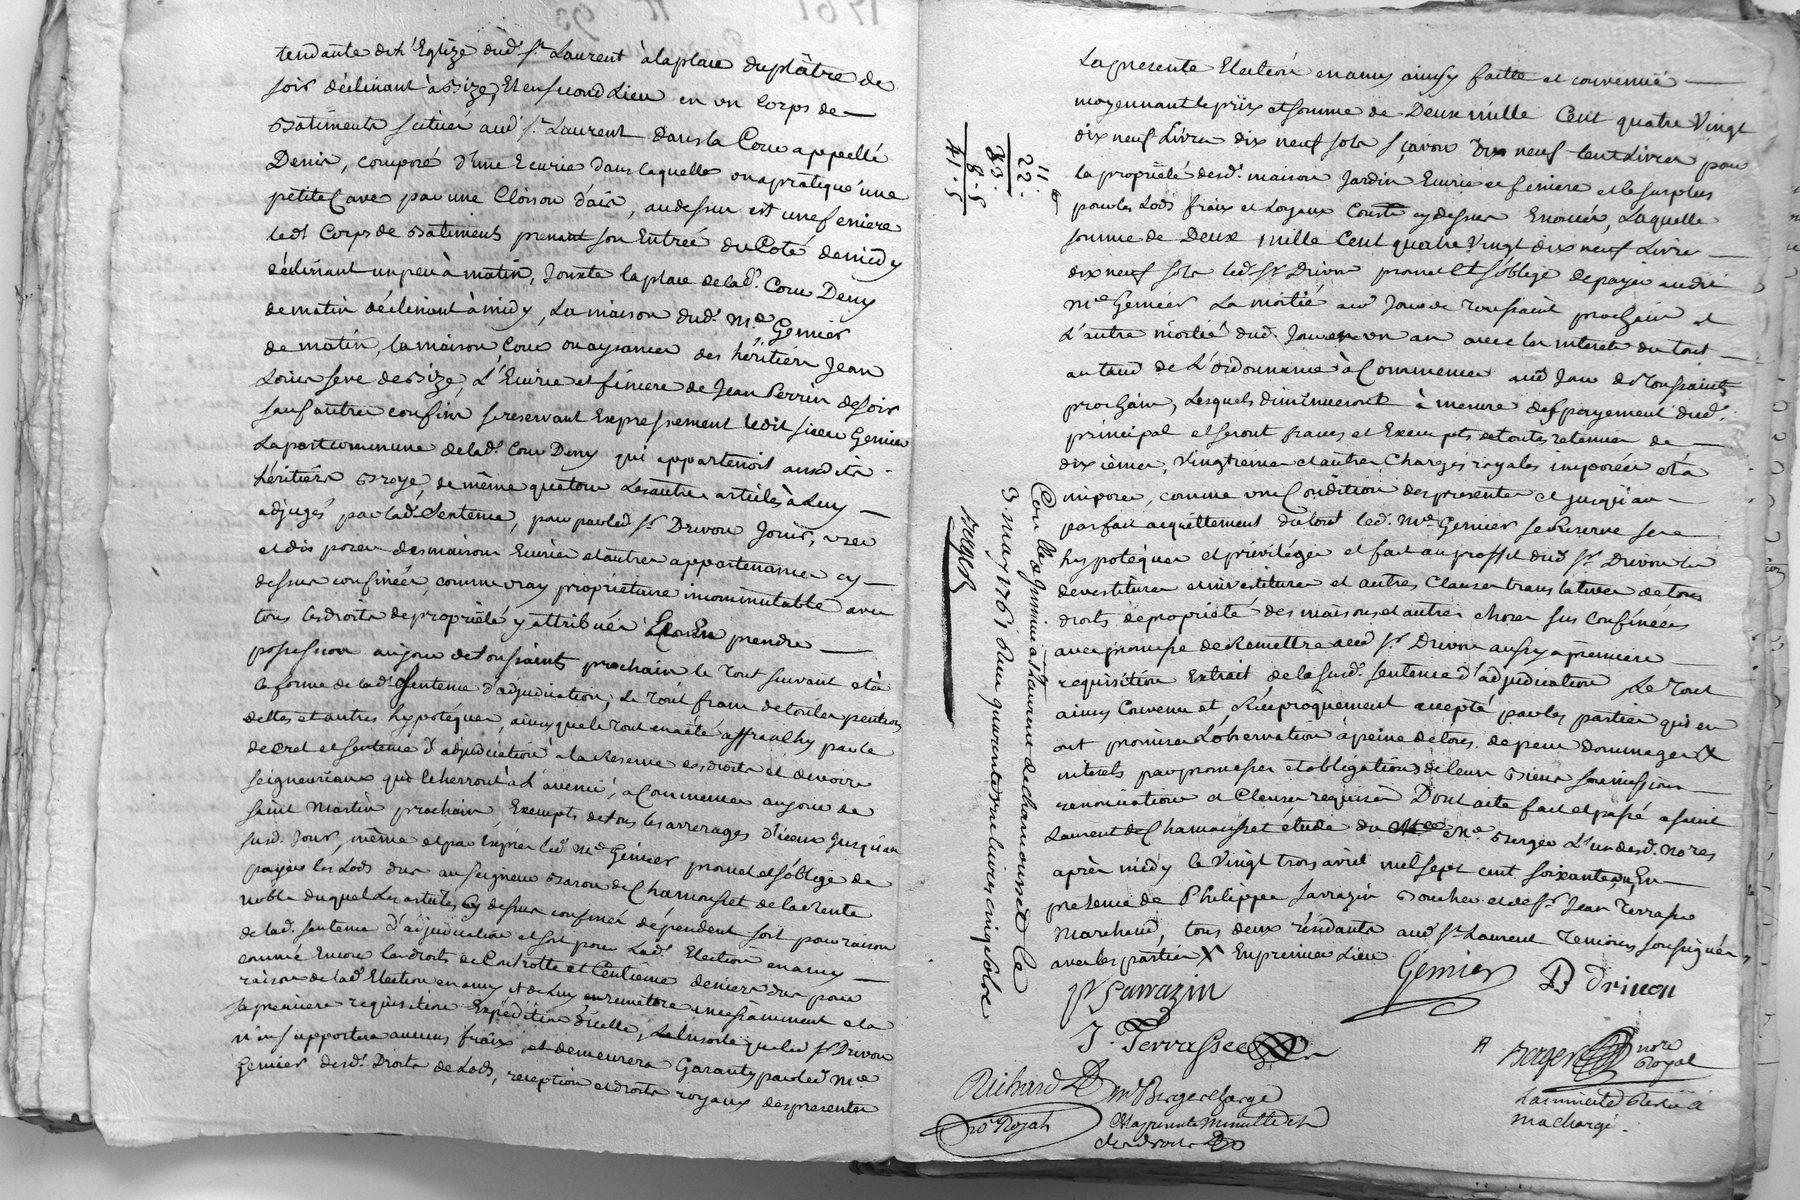 tendante de l'Eglize dud. Sr. Laurent à la place du plâtre de
soir déclinant à Bize, Et en second Lieu en un Corps de
Batiments scitué aud. St. Laurent dans la Cour appellé
Denis, composé d'une Ecurie dans laquelle on a pratiqué une
petite Cave par une Cloison d'ais, au dessus est une feniere
ledt Corps de Batiments prenant son Entrée du Coté de midy
déclinant un peu à matin, Jouxte la place de lad. Cour Deny
de matin déclinant à midy, La maison dud. Me. Gemier
de matin, la maison Cour ou aysances des héritiers Jean
de Bize, L'Ecurie et féniere de Jean Perrin de soir
sauf autres confins se reservant Expressement ledit sieur Gemier
La part commune de lad. Cour Deny qui appartenoit ausdits
héritiers Broye, de même que tous Les autres articles à Luy
adjugés par lad. Sentence, pour par led. Sr. Drivon Jouir, user
et dis poser des maisons Ecurie et autres appartenances cy
dessus confinées, comme vray propriétaire incommutable avec
tous les droits de propriété y attribués Et en prendre
possession au jour de toussaints prochain le Tout suivant et à
la forme de lad. Sentence d'adjudication, Le Tout franc de toutes pentions
dettes et autres hypotéques, ainsy que le Tout en a été affranchy par le
decret et sentence d'adjudication à la Reserve des droits et devoirs
seigneuriaux qui le herront à L'avenir, à Commencer au jour de
saint Martin prochain, Exempts de tous les arrerages d'iceux Jusqu'au
susd. Jour, même et par Exprés led. Me Gemier promet et s'oblige de
payer les Lods dus au seigneur Baron de Chamousset et de la Rente
noble duquel Les articles Cy dessus confinés dépendent soit pour raison
de lad. sentence d'adjudication et soit pour Lad. Election en amy
comme Encore les droits de Controlle et Centieme deniers dus pour
raison de lad. Election en amy et de Luy en remettre incessamment et à
sa premiere requisition Expédition d'icelle, De la sorte que led. Sr Drivon
n'en supportera aucuns fraix, et demeurera Garanty par led. Me
Gemier desd. Droits de Lods, reception et droits royaux des presentes
La presente Election en amy ainsy faitte et convenuë
moyennant le prix et somme de Deux mille Cent quatre Vingt
dix neuf Livres dix neuf sols sçavoir Dix neuf Cent Livres pour
la propriété desd. maison Jardin Ecurie et feniere et le surplus
pour les Lods fraix et Loyaux Couts cy dessus Enoncés, Laquelle
somme de Deux mille Cent quatre Vingt dix neuf Livres
dix neuf sols led. Sr Drivon promet Et s'oblige de payer audit
Me Gemier La moitié au Jour de Toussaint prochain et
L'autre moitié dud. Jour en un an avec les interets du tout
au taux de L'ordonnance à Commencer aud Jour de Toussaints
prochain, Lesquels diminueront à mesure des payement dud.
principal et seront francs et Exempts de toutes retenues de
dixiémes, Vingtiemes et autres Charges royales imposées et à
imposer, comme une Condition des presentes et jusqu'au
parfait acquittement du tout led. Me Gemier se Reserve ses
hypotéques et privilége et fait au proffit dud. Sr. Drivon les
devestitures et investitures et autres Clauses translatives de tous
droits de propriété des maisons et autres choses sus Confinées
avec promesse de Remettre aud. Sr. Drivon aussy a premiere
requisition Extrait de la susd. sentence d'adjudication Le Tout
ainsy Convenu et Réciproquement accepté par les parties qui en
ont promis L'observation à peine de tous depens Dommages &
interets par promesses et obligations de leurs Biens soumissions
renonciations et Clauses requises Dont acte fait et passé a saint
Laurent de Chamousset étude du Me. Berger L'un desd. No.res
après midy le Vingt trois avril mil sept cent soixante, un, En
presence de Philippe Sarrazin Boucher et de Sr. Jean Terrasse
Marchand, tous deux résidants aud. St. Laurent Temoins soussignés
avec les parties X En premier Lieu
P. Sarrazin
Gemier
D. Drivon
J. Terrasse
A Berger nore Royal
Richard
No. Royal
Mr Berger chargé
De la presente Minutte et
des droits
La minutte Restée a
ma charge.
11
22.
33.
8.5
41.5
Con.llé & Jnsinué a St Laurent de chamousset le
3 may 1761 Reçu quarante une livres cinq sols
Berger